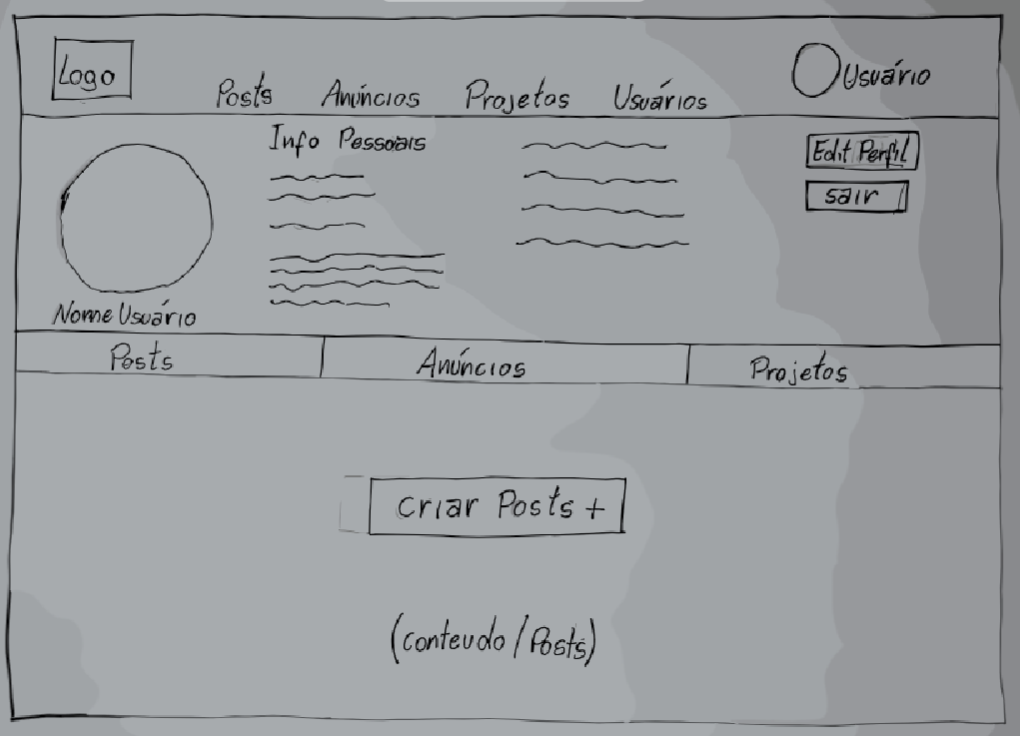 Logo
Posts Anúncios Projetos Usuários
Usuário
Info Pessoais
Edit Perfil
sair
Nome Usuário
Posts
Anúncios
Projetos
criar Posts +
(conteudo / Posts)